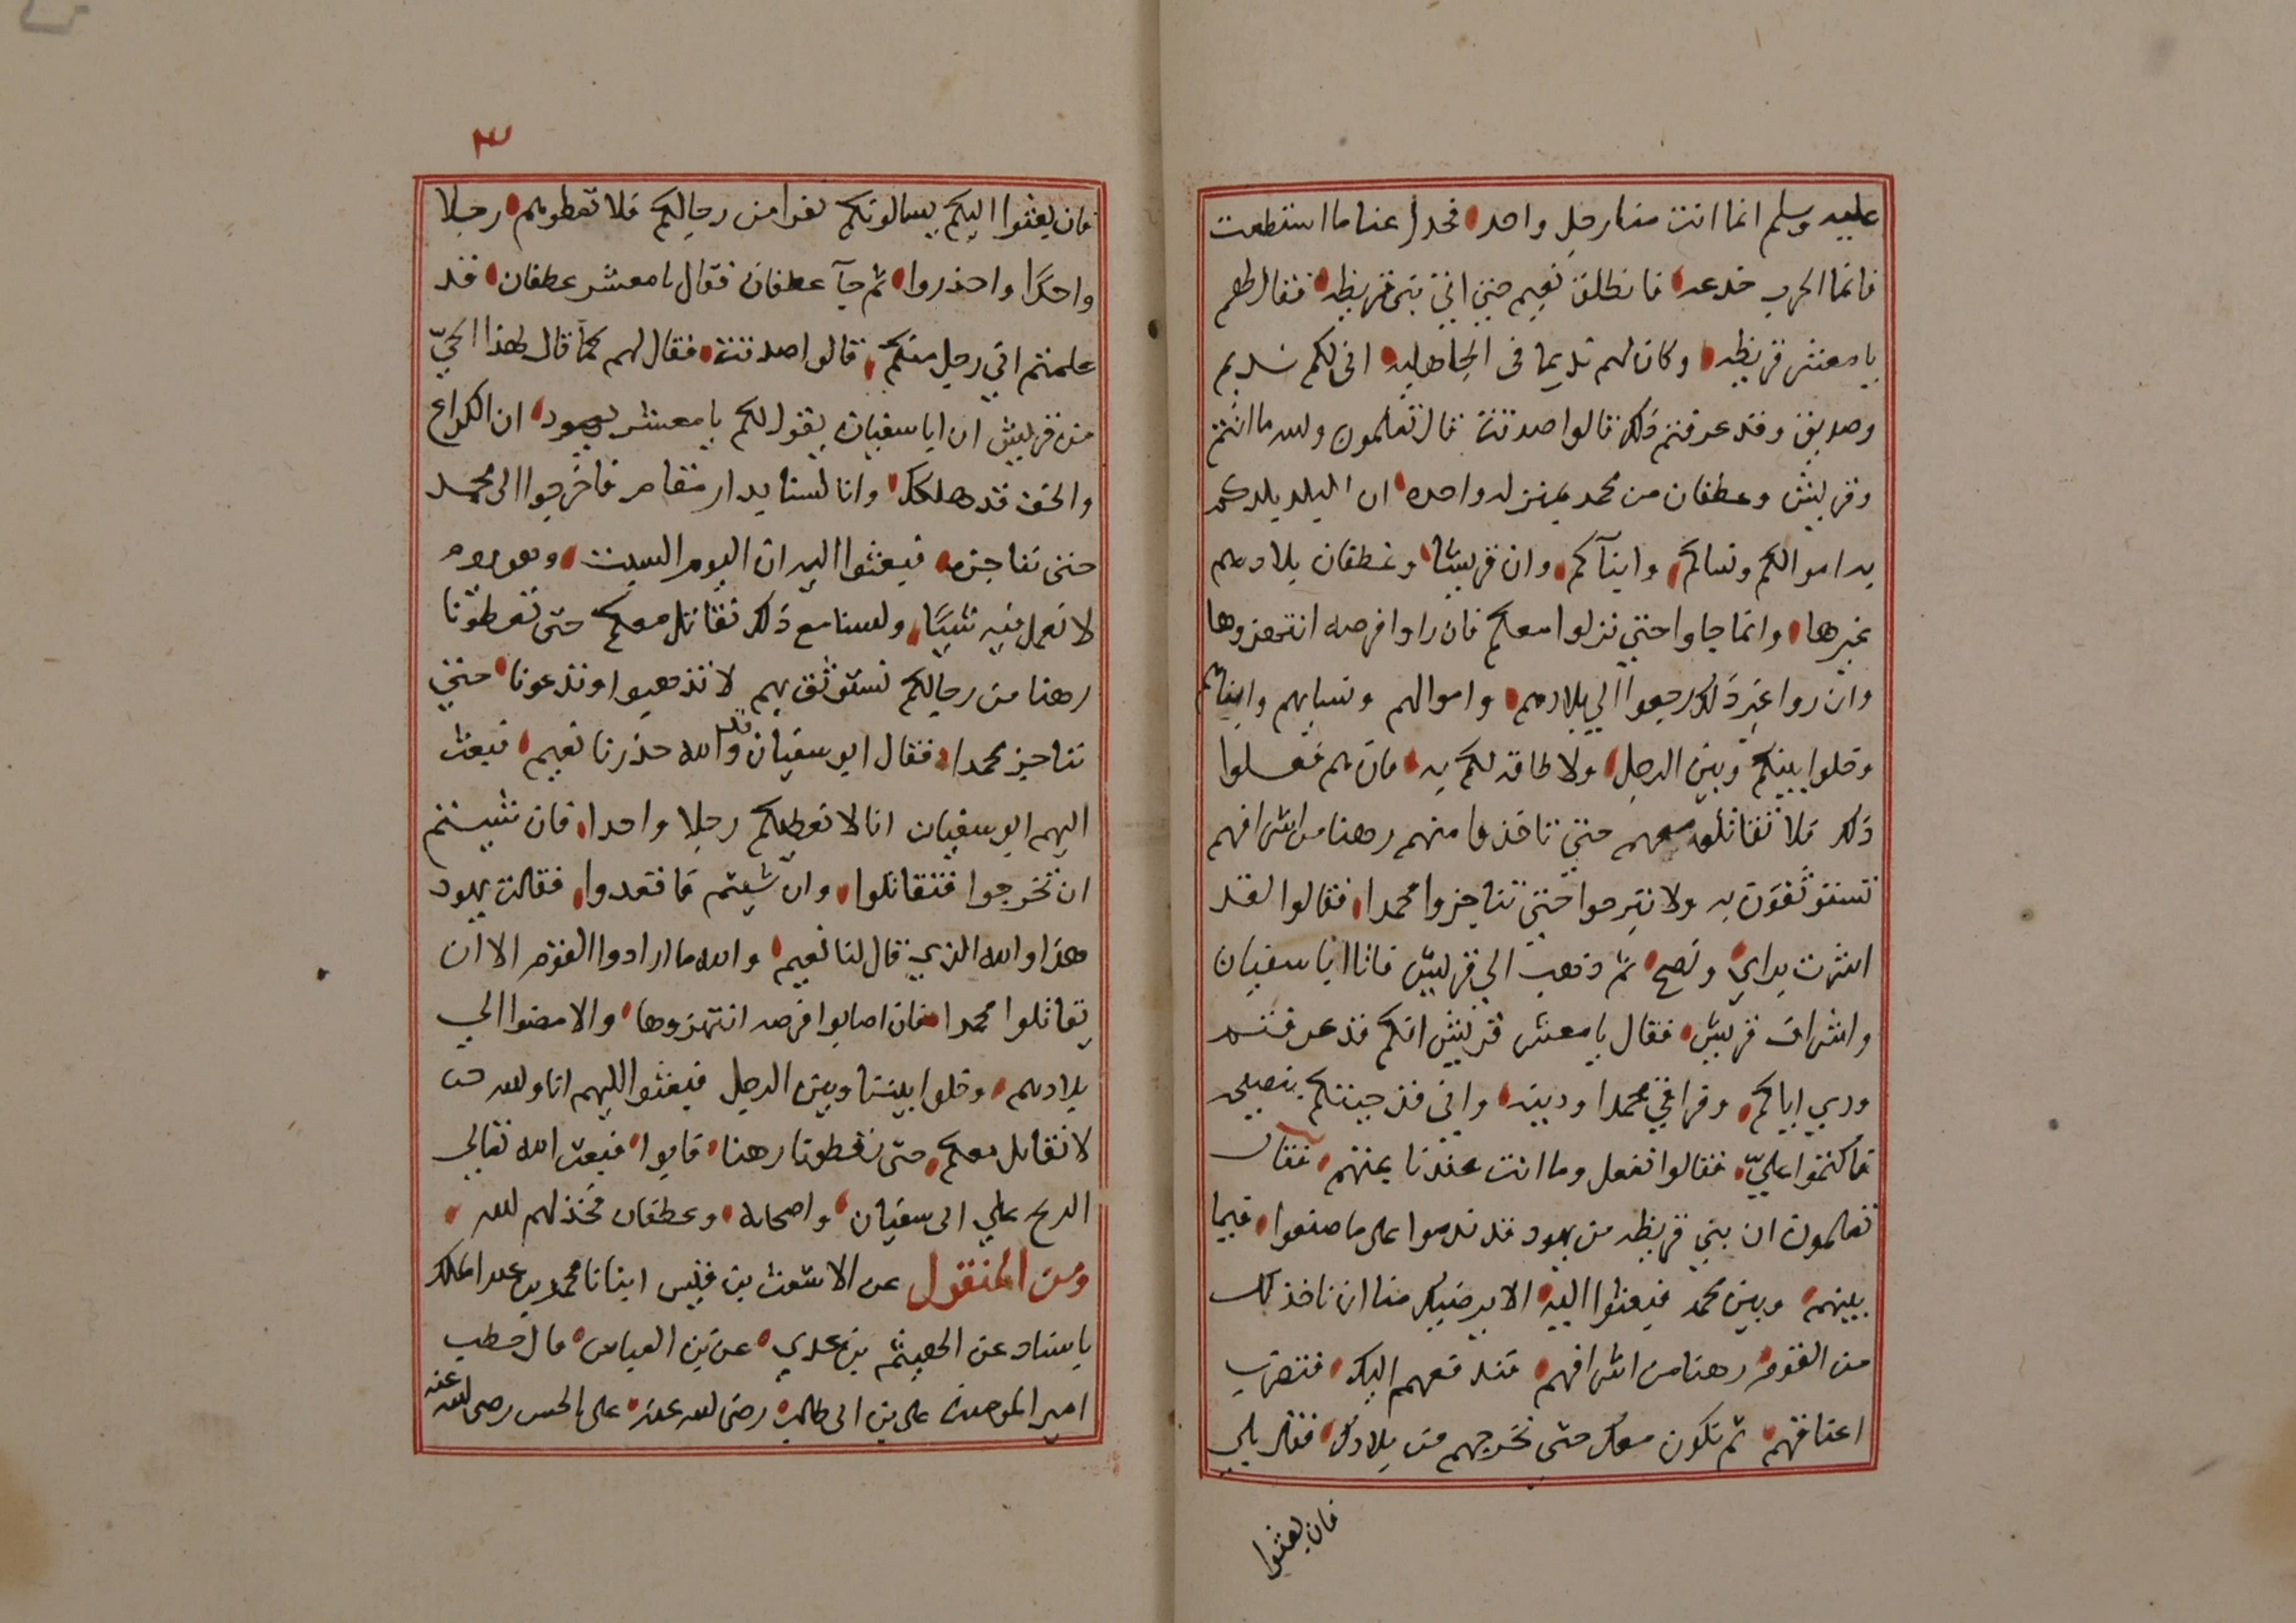 عليه وسلم انما انت منا رجل واحد فخذل عنا ما استطعت
فانما الحرب خدعه فانطلق نعيم حتى اتى بنى قريظه فقال لهم
يا معشر قريظه وكان لهم نديما فى الجاهليه انى لكم نديم
وصديق وقد عرفتم ذلك قالوا صدقت قال تعلمون والله ما انتم
وقريش وعطفان من محمد بمنزله واحده ان البلد بلدكم
به اموالكم ونساكم وابنآكم وان قريشا وغطفان بلادهم
غيرها وانما جاوا حتى نزلوا معكم فان راوا فرصه انتهزوها
وان راوا غير ذلك رجعوا الي بلادهم واموالهم ونسايهم وابنائهم
وخلوا بينكم وبين الرجل ولا طاقه لكم به فان هم فعلوا
ذلك فلا تقاتلوا معهم حتى تاخذوا منهم رهنا من اشرافهم
تستوثقون به ولا تبرحوا حتى تناجزوا محمدا فقالوا لقد
اشرت براي ونصح ثم ذهب الي قريش فاتا ابا سفيان
واشراف قريش فقال يا معشر قريش انكم قد عرفتم
ودي اياكم وفراقي محمدا ودينه وانى قد جيتكم بنصيحه
فاكتموا عليّ فقالوا نفعل وما انت عندنا بمتهم فقال
تعلمون ان بني قريظه من يهود قد ندموا على ما صنعوا فيما
بينهم وبين محمد فبعثوا اليه الا يرضيك منا ان ناخذ لك
من القوم رهنا من اشرافهم فندفعهم اليك فتضرب
اعناقهم ثم نكون معك حتى نخرجهم من بلادك فقال بلي
فان بعثوا
٣
فان بعثوا اليكم يسالونكم نفرا من رجالكم فلا تعطوهم رجلا
واحدًا واحذروا ثم جآ عطفان فقال يا معشر عطفان قد
علمتم اني رجل منكم قالوا صدقت فقال لهم كما قال لهذا الحيّ
من قريش ان ابا سفيان يقول لكم يا معشر يهود ان الكراع
والخف قد هلك وانا لسنا بدار مقام فاخرجوا الى محمد
حتى نناجزه فبعثوا اليه ان اليوم السبت وهو يوم
لا نعمل فيه شيًا ولسنا مع ذلك نقاتل معكم حتى تعطونا
رهنا من رجالكم نستوثق بهم لا تذهبوا وتدعونا حتى
نناجز محمدا فقال ابو سفيان قد والله حذرنا نعيم فبعث
اليهم ابو سفيان انا لا نعطيكم رجلا واحدا فان شيتم
ان تخرجوا فتقاتلوا وان شيتم فاقعدوا فقالت يهود
هذا والله الذي قال لنا نعيم والله ما ارادوا القوم الا ان
يقاتلوا محمدا فان اصابوا فرصه انتهزوها والا مضوا الي
بلادهم وخلوا بيننا وبين الرجل فبعثوا اليهم انا والله
لا نقاتل معكم حتى تعطونا رهنا فابوا فبعث الله تعالي
الريح علي ابى سفيان واصحابه وعطفان فخذلهم الله
ومن المنقول عن الاشعث بن قيس انبانا محمد بن عبد الملك
باسناد عن الهيثم بن عدي عن بن العباس قال خطب
امير المومنين على بن ابى طالب رضى الله عنه على الحسن رضى الله عنه